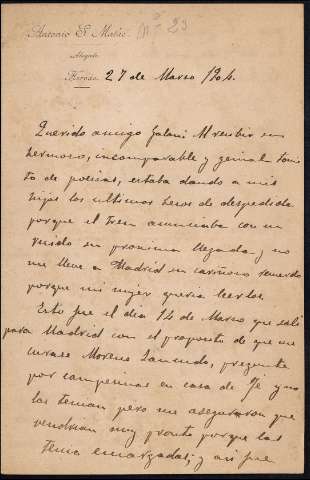 Antonio S. Matéo Nº 23
Abogado
27 de Marzo 1904.
Querido amigo Galan: Al recibir su
hermoso, incomparable y genial tomi
to de poesias, estaba dando a mis
hijos los ultimos besos de despedida
porque el tren anunciaba con su
ruido su proxima llegada y no
me lleve a Madrid su cariñoso recuerdo
porque mi mujer queria leerlos.
Esto fue el dia 14 de Marzo que sali
para Madrid con el proposito de que me
curase Moreno pregunte
por campesinas en casa de Fe y no
las tenian pero me aseguraron que
vendrian muy pronto porque las
tenia encargadas; y asi fue